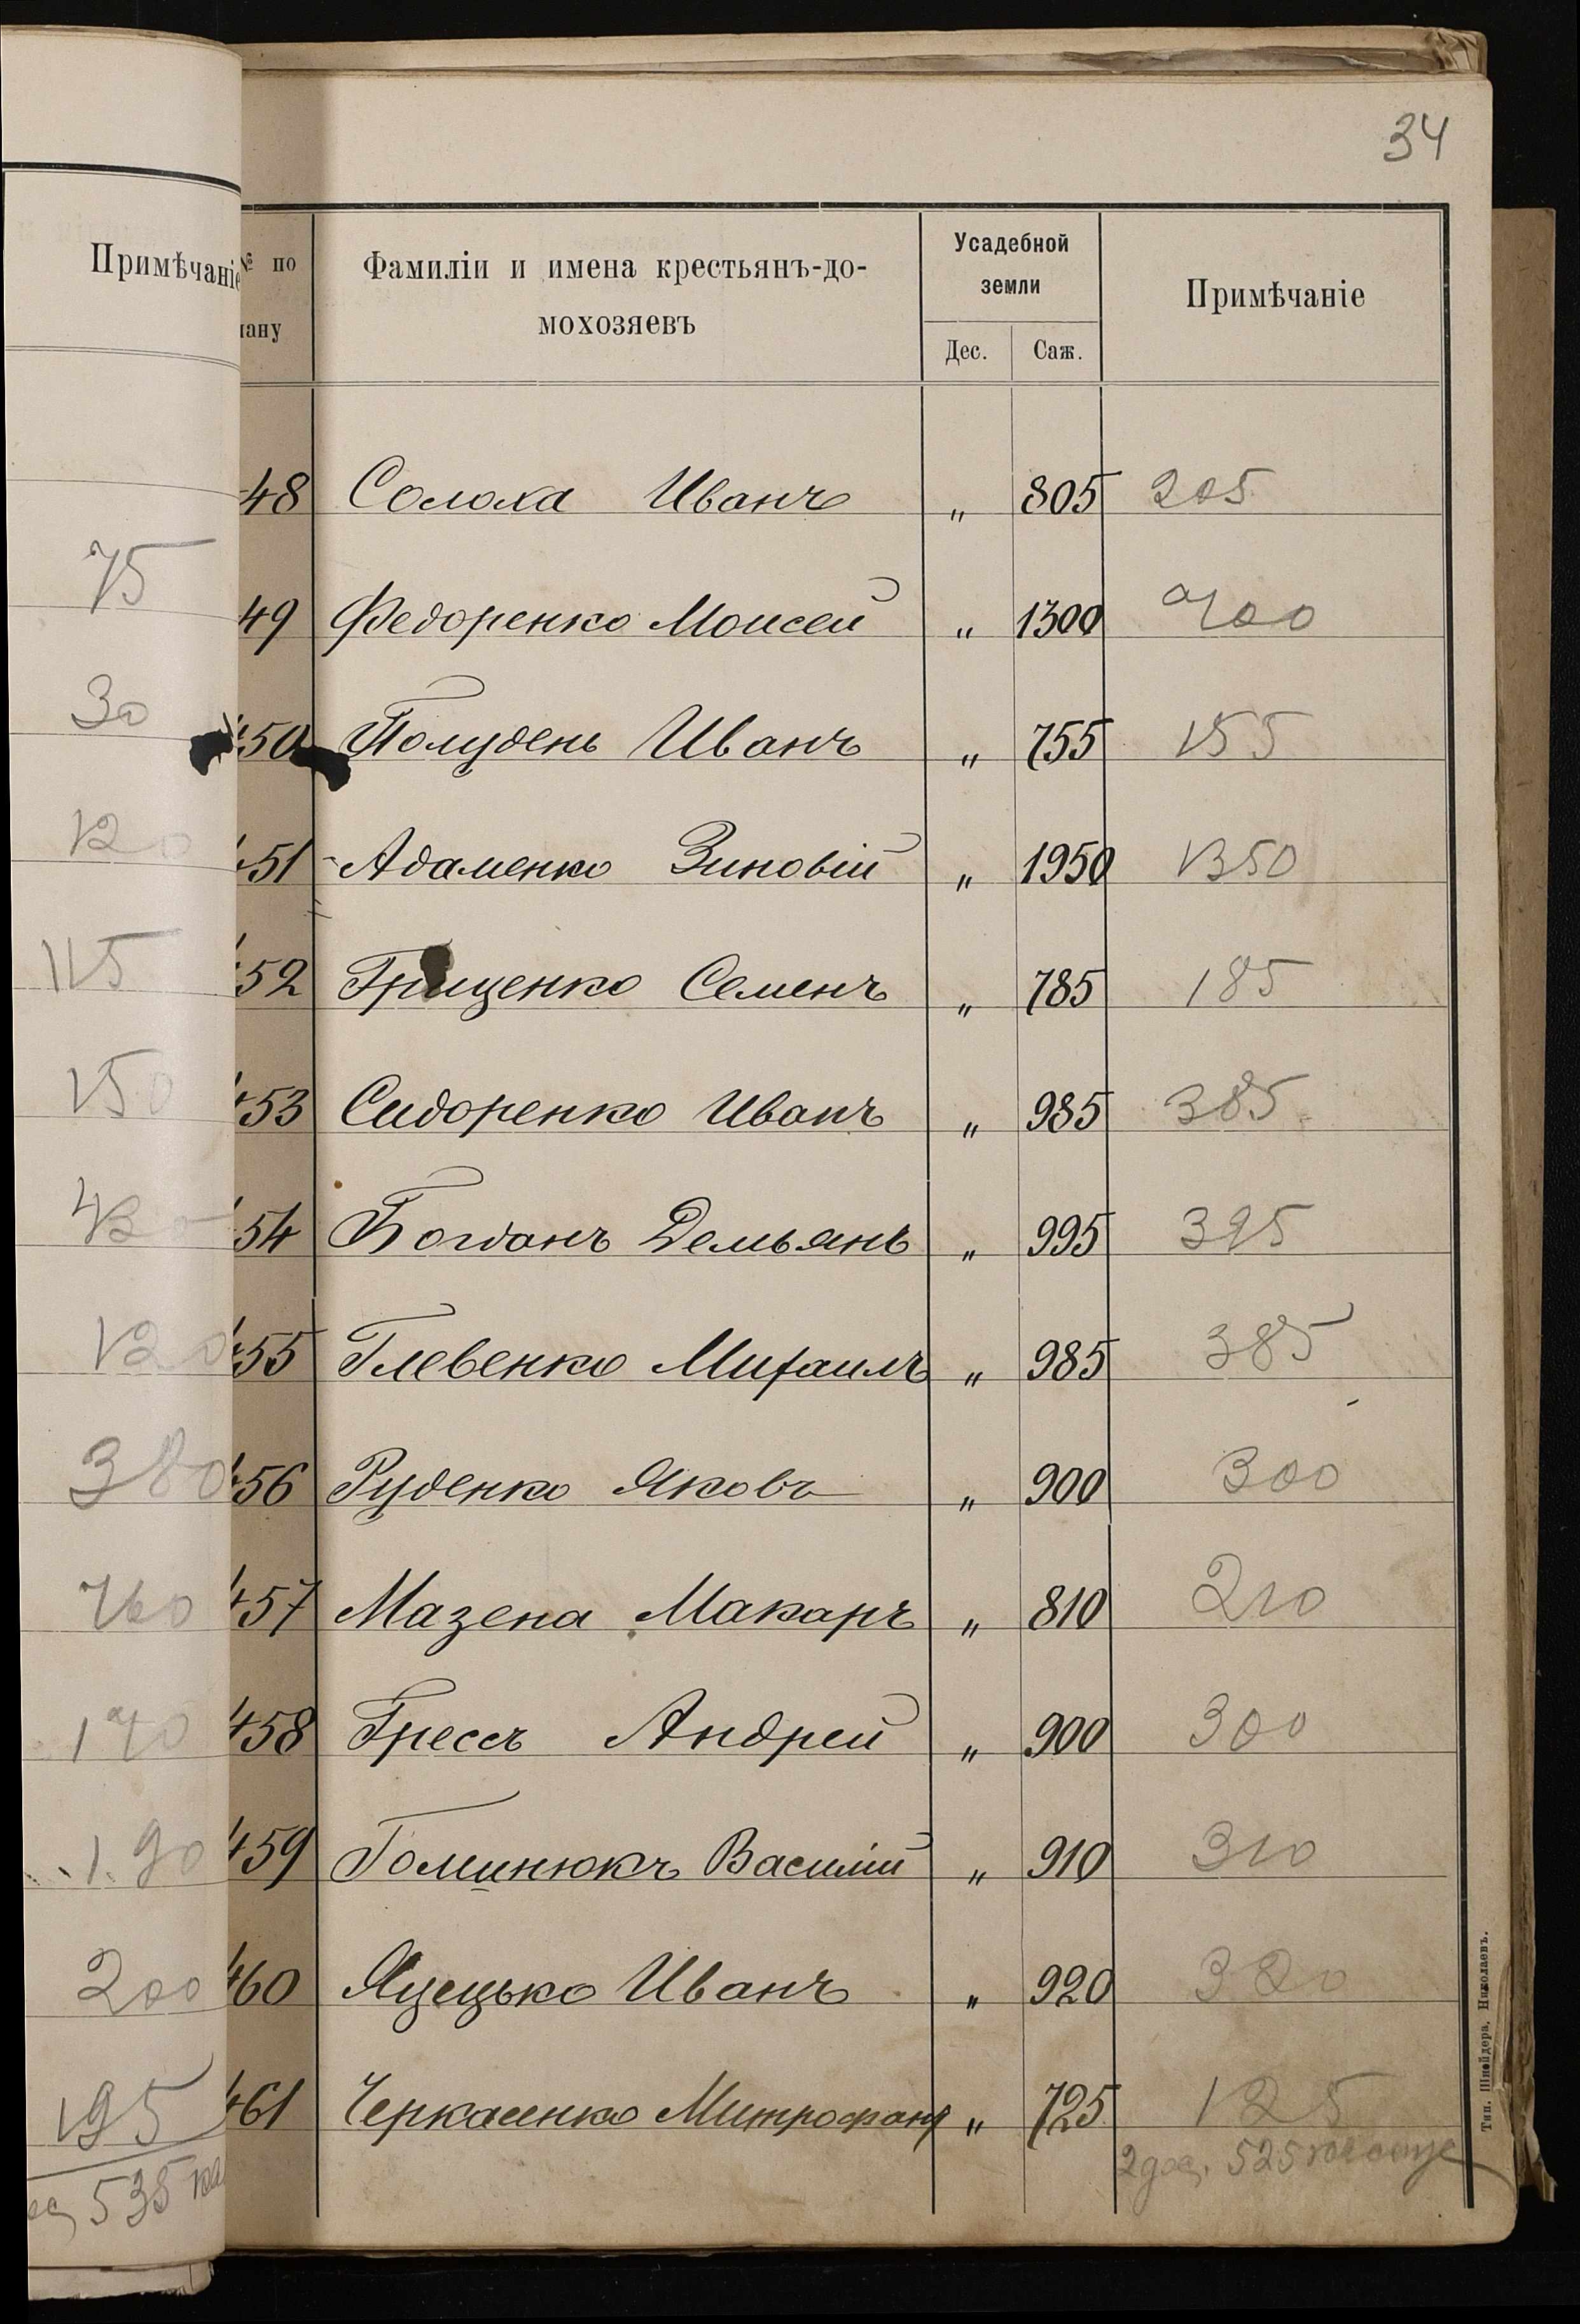 34
Примѣчаніе
75
30
120
115
150
430
120
380
760
170
190
200
195
535
№ по
лану
Фамиліи и имена крестьянъ-до-
мохозяевъ
Усадебной
земли
Дес. Саж.
Примѣчаніе
48 Солоха Иванъ „ 805 205
49 Федоренко Моисей „ 1300 700
450 Полудень Иванъ „ 755 155
451 Адаменко Зиновій „ 1950 1350
452 Грищенко Семенъ „ 785 185
453 Сидоренко Иванъ „ 985 385
454 Богданъ Демьянъ „ 995 395
455 Глевенко Михаилъ „ 985 385
456 Руденко Яковъ „ 900 300
457 Мазена Макаръ „ 810 210
458 Грессъ Андрей „ 900 300
459 Гоминюкъ Василій „ 910 310
460 Яцецько Иванъ „ 920 320
461 Черкасенко Митрофанъ „ 725 125
2 дес. 525
Тип. Шнейдера, Николаевъ.